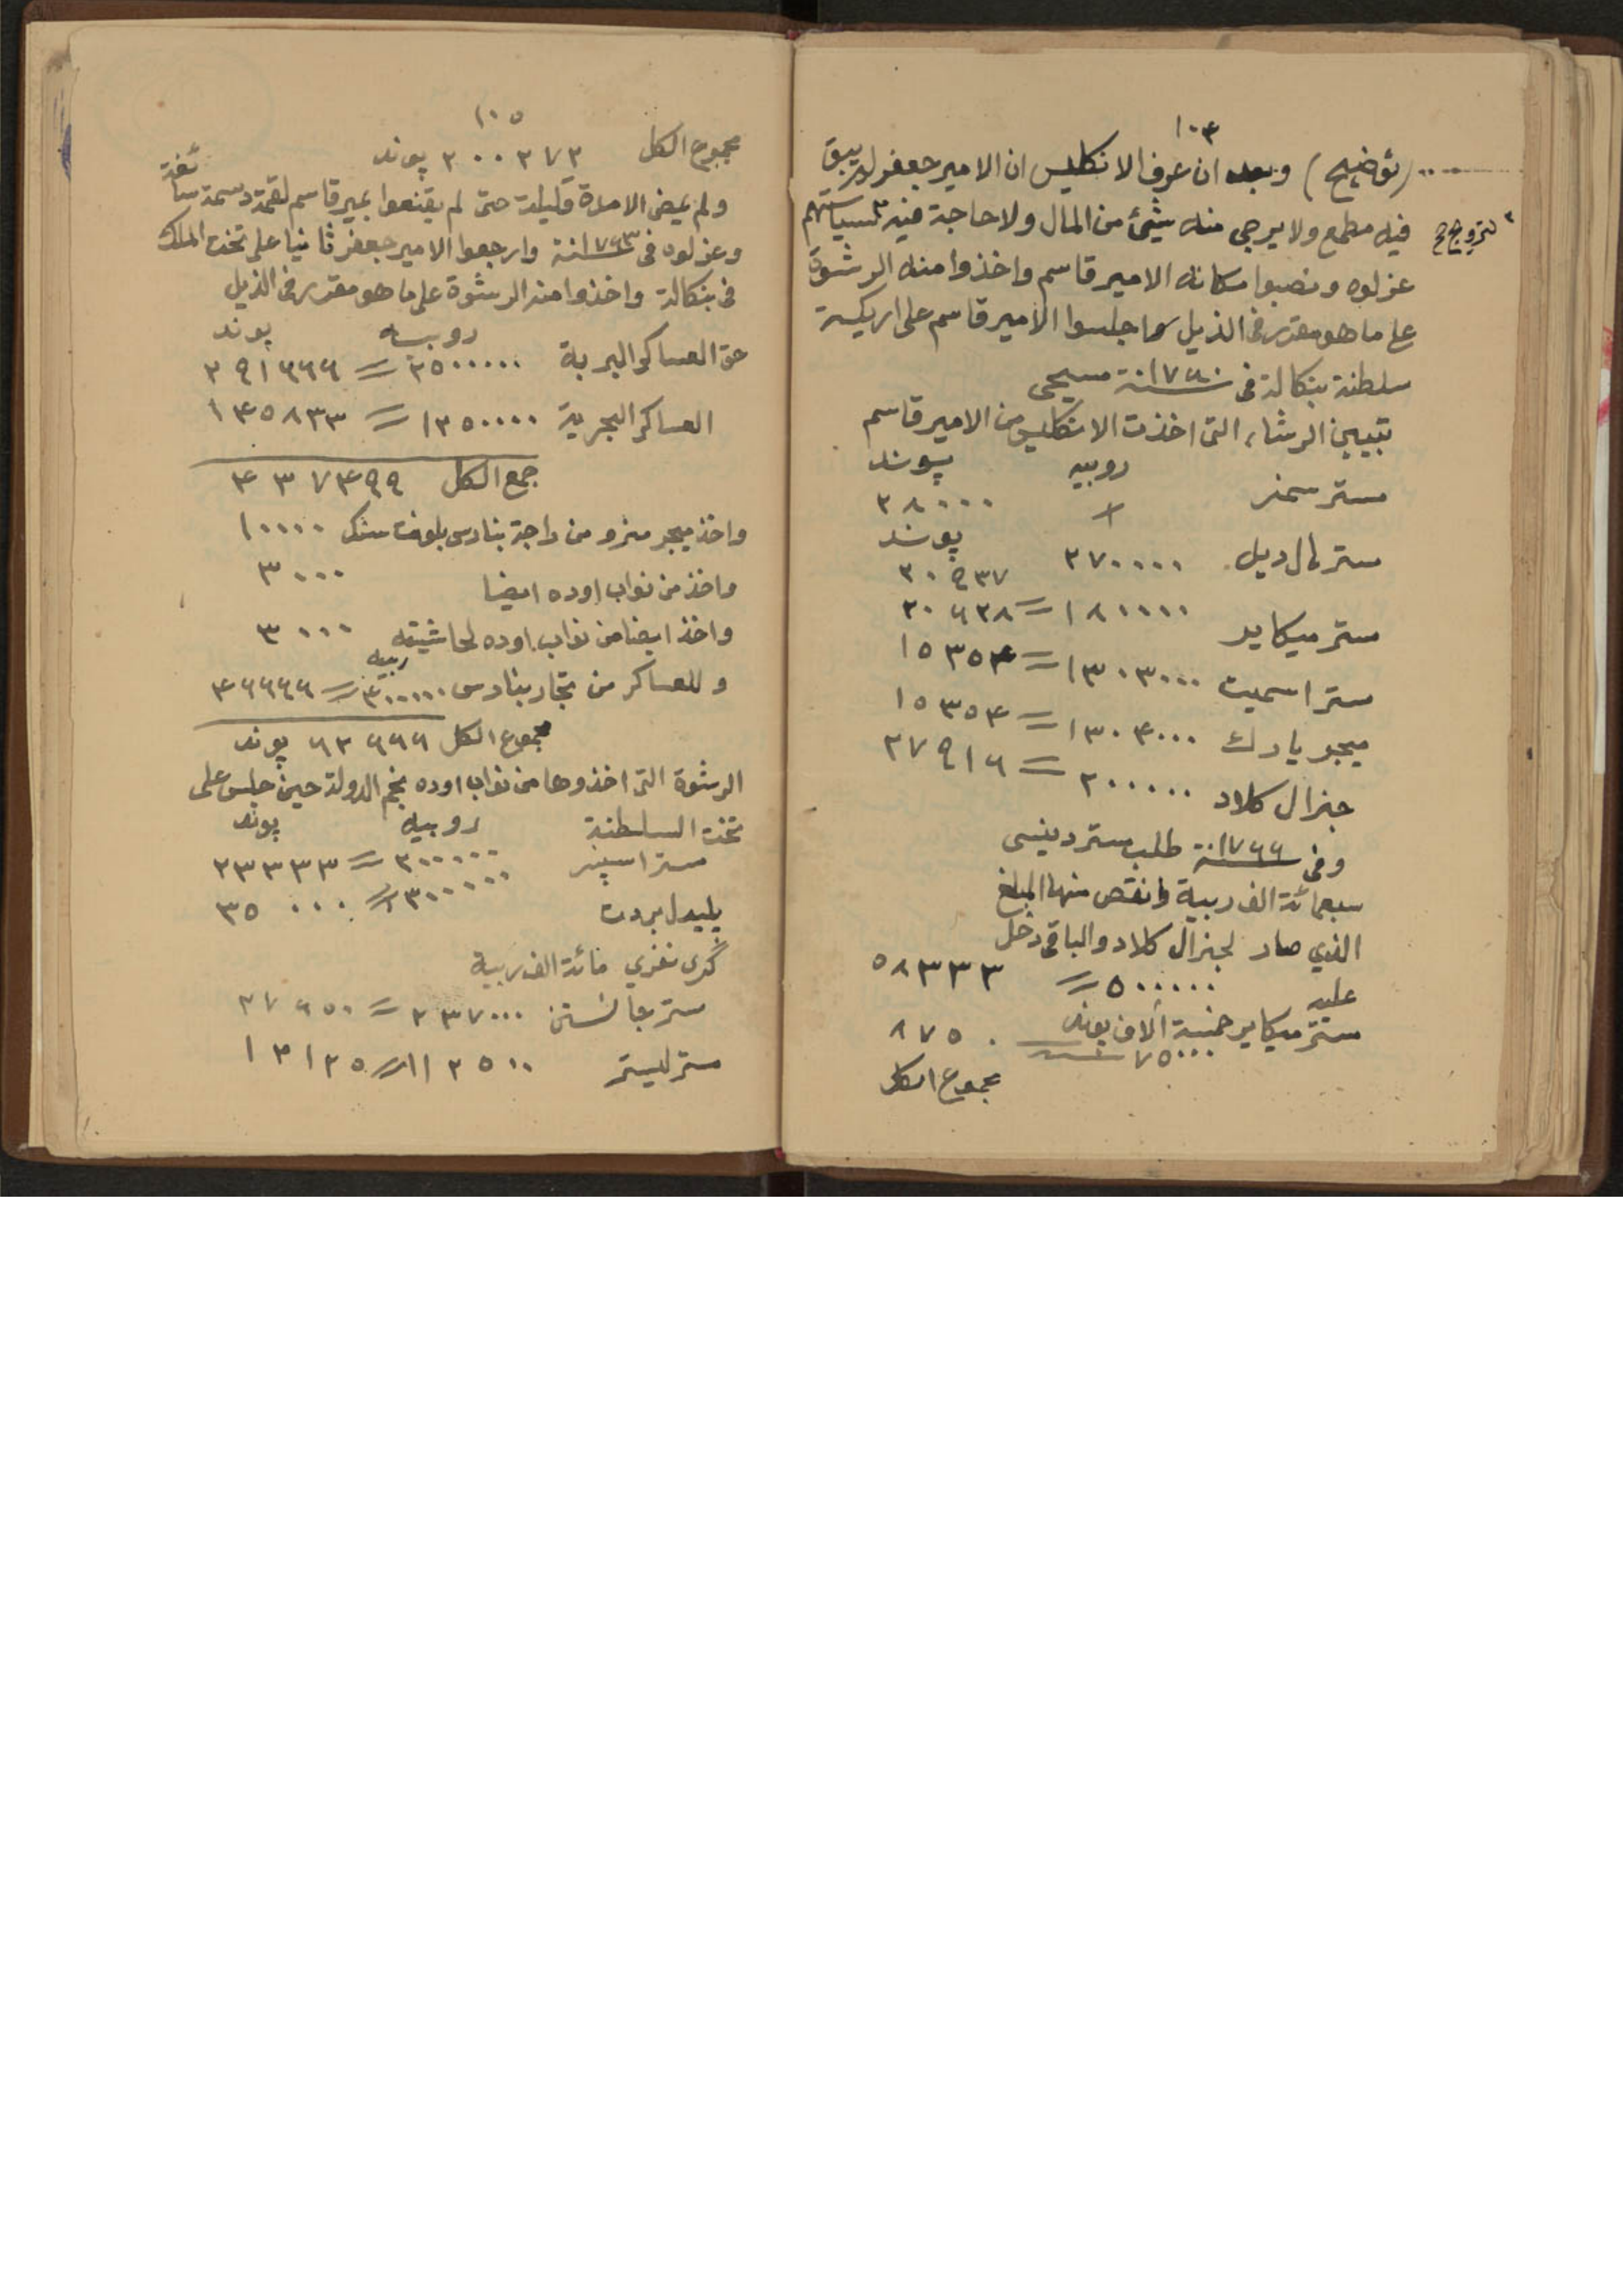 ١٠٤
(توضيح) وبعد ان عرف الانكليس ان الامير جعفر لم يبق
فيه مطمع ولا يرجى منه شيئ من المال ولا حاجة فيه ٣ لسياستهم
٣ لترويج صح
عزلوه ونصبوا مكانه الامير قاسم واخذوا منه الرشوة
على ما هو مقدر فى الذيل لما جلسوا الامير قاسم على اريكة
سلطنة بنكالة فى ١٧٦٠سنة مسيحى
تبيين الرشاء التى اخذت الانكليس من الامير قاسم
روبيه پوند
مستر سمنر + ٢٨٠٠٠
پوند
مستر هال ديل ٢٧٠٠٠٠ ٣٠٩٣٧
مستر ميكاير ١٨٠٠٠٠ = ٢٠٦٢٨
مستر اسميت ١٣٠٣٠٠٠ = ١٥٣٥٤
ميجر يارك ١٣٠٤٠٠٠ = ١٥٣٥٤
جنرال كلاد ٢٠٠٠٠٠ = ٢٧٩١٦
وفى ١٧٦٦سنة طلب مستر دينسى
سبعمائة الف ربية وانقص منها المبلغ
الذي صار لجنرال كلاد والباقى دخل
عليه ٥٠٠٠٠٠ = ٥٨٣٣٣
مستر ميكاير خمسة آلاف پوند
٧٥٠٠٠ ٨٧٥٠
مجموع الكل
١٠٥
مجموع الكل ٢٠٠٢٧٣ پوند
ولم يمض الا مدة قليلة حتى لم يقنعوا بمير قاسم لقمة دسمة سائغة
وعزلوه فى ١٧٦٣سنة وارجعوا الامير جعفر ثانيا على تخت الملك
فى بنكالة واخذوا منه الرشوة على ما هو مقدر فى الذيل
روبيه پوند
حق العساكر البرية ٢٥٠٠٠٠٠ = ٢٩١٦٦٦
العساكر البحرية ١٢٥٠٠٠٠ = ١٤٥٨٣٣
جمع الكل ٤٣٧٤٩٩
واخذ ميجر منرو من راجة بنارس بلونت سنك ١٠٠٠٠
واخذ من نواب اوده ايضا ٣٠٠٠
واخذ ايضا من نواب اوده لحاشيته ٣٠٠٠
وللعساكر من تجار بنارس ربيه ٤٠٠٠٠٠ = ٤٦٦٦٦
مجموع الكل ٦٢٦٦٦ پوند
الرشوة التى اخذوها من نواب اوده نجم الدولة حين جلس على
تخت السلطنة روبيه پوند
مستر اسپنسر ٢٠٠٠٠٠ = ٢٣٣٣٣
پليدل بردت ٣٠٠٠٠٠ = ٣٥٠٠٠
گرى نفرى مائة الف ربية
مستر جانستن ٢٣٧٠٠٠ = ٢٧٦٥٠
مستر ليستر ١١٢٥٠٠ = ١٣١٢٥